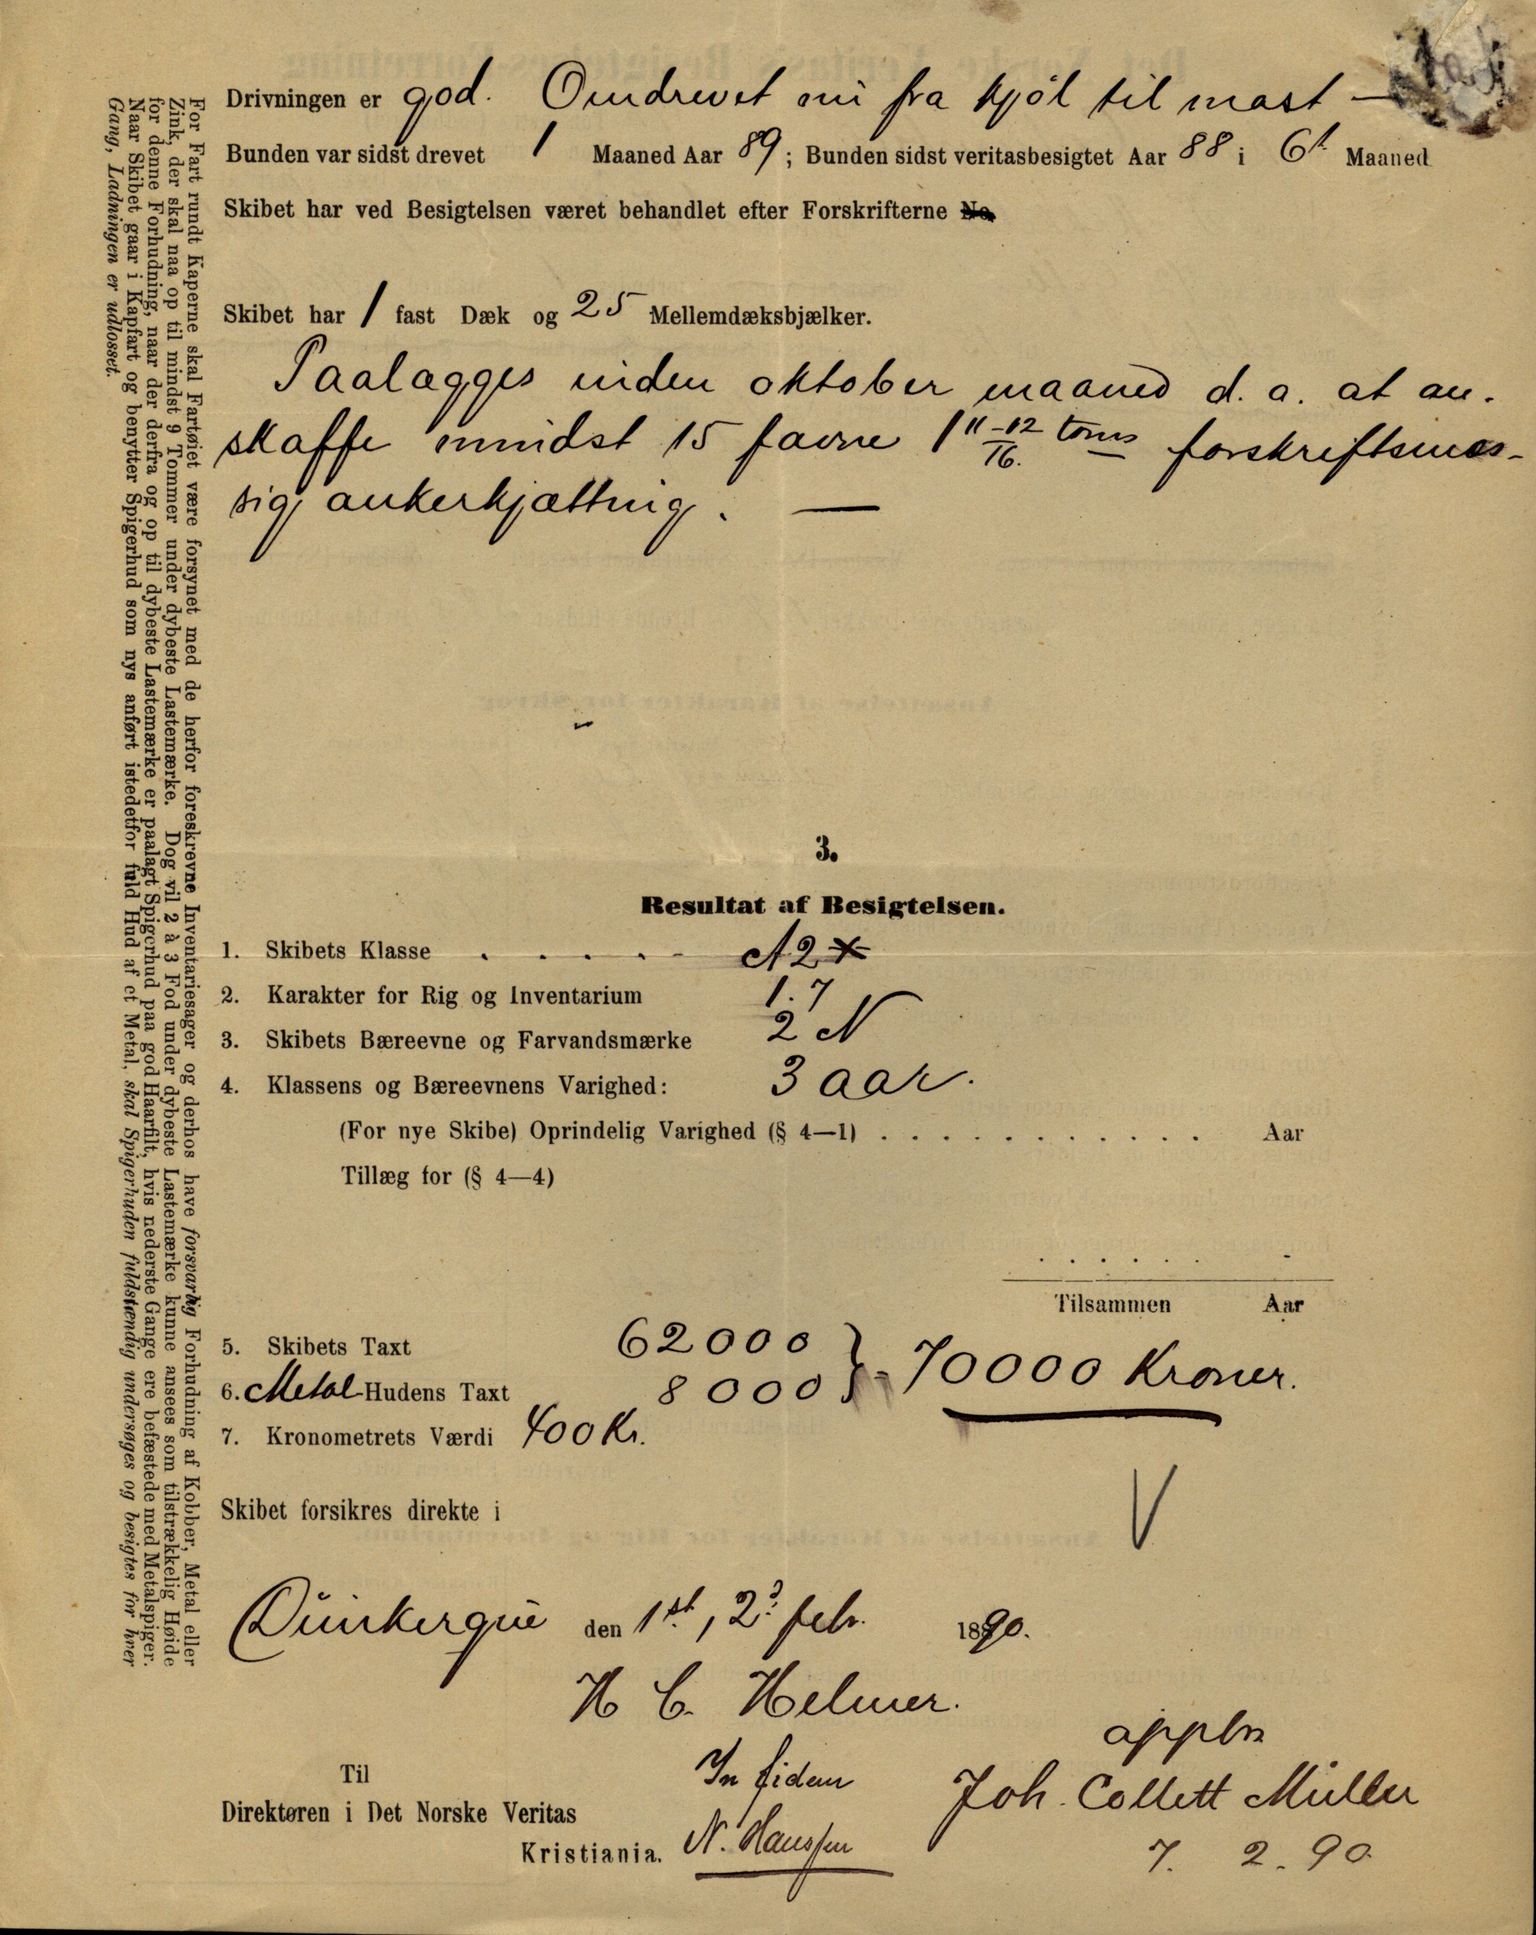 Drivningen er god. Omdrevet nu fra kjöl til mast —
Bunden var sidst drevet 1 Maaned Aar 89; Bunden sidst veritasbesigtet Aar 88 i 6t Maaned
Skibet har ved Besigtelsen været behandlet efter Forskrifterne No
Skibet har 1 fast Dæk og 25 Mellemdæksbjælker.
Paalægges inden oktober maaned d. a. at an-
skaffe mindst 15 favne 1 11-12/16. toms forskriftsmæs-
sig ankerkjætting. —
3.
Resultat af Besigtelsen.
1. Skibets Klasse . . . . . A2*
2. Karakter for Rig og Inventarium 1.7
3. Skibets Bæreevne og Farvandsmærke 2 N
4. Klassens og Bæreevnens Varighed: 3 aar.
(For nye Skibe) Oprindelig Varighed (§ 4—1) . . . . . . . . . . . . Aar
Tillæg for (§ 4—4)
. . . . . . -
Tilsammen Aar
5. Skibets Taxt 62000
6. Metal-Hudens Taxt 8000 } = 70000 Kroner.
7. Kronometrets Værdi 400 Kr.
Skibet forsikres direkte i
V
Dünkerque den 1st, 2d febr. 1890.
H C. Helmer.
appbr
In fidem
Joh. Collett Müller
Til
Direktøren i Det Norske Veritas
N. Hanssen
Kristiania.
7. 2. 90
For Fart rundt Kaperne skal Fartøiet være forsynet med de herfor foreskrevne Inventariesager og derhos have forsvarlig Forhudning af Kobber, Metal eller
Zink, der skal naa op til mindst 9 Tommer under dybeste Lastemærke. Dog vil 2 à 3 Fod under dybeste Lastemærke kunne ansees som tilstrækkelig Høide
for denne Forhudning, naar der derfra og op til dybeste Lastemærke er paalagt Spigerhud paa god Haarfilt, hvis nederste Gange ere befæstede med Metalspiger.
Naar Skibet gaar i Kapfart og benytter Spigerhud som nys anført istedetfor fuld Hud af et Metal, skal Spigerhuden fuldstændig undersøges og besigtes for hver
Gang, Ladningen er udlosset.